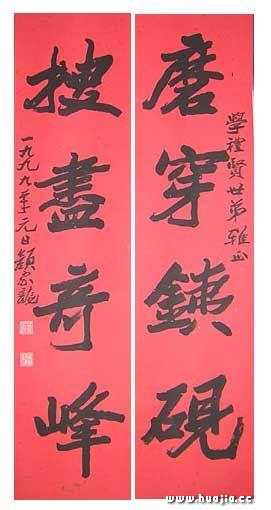 學禮賢世弟雅正
磨穿銕硯
搜盡奇峰
一九九九年元日顏家龍
www.huajia.cc